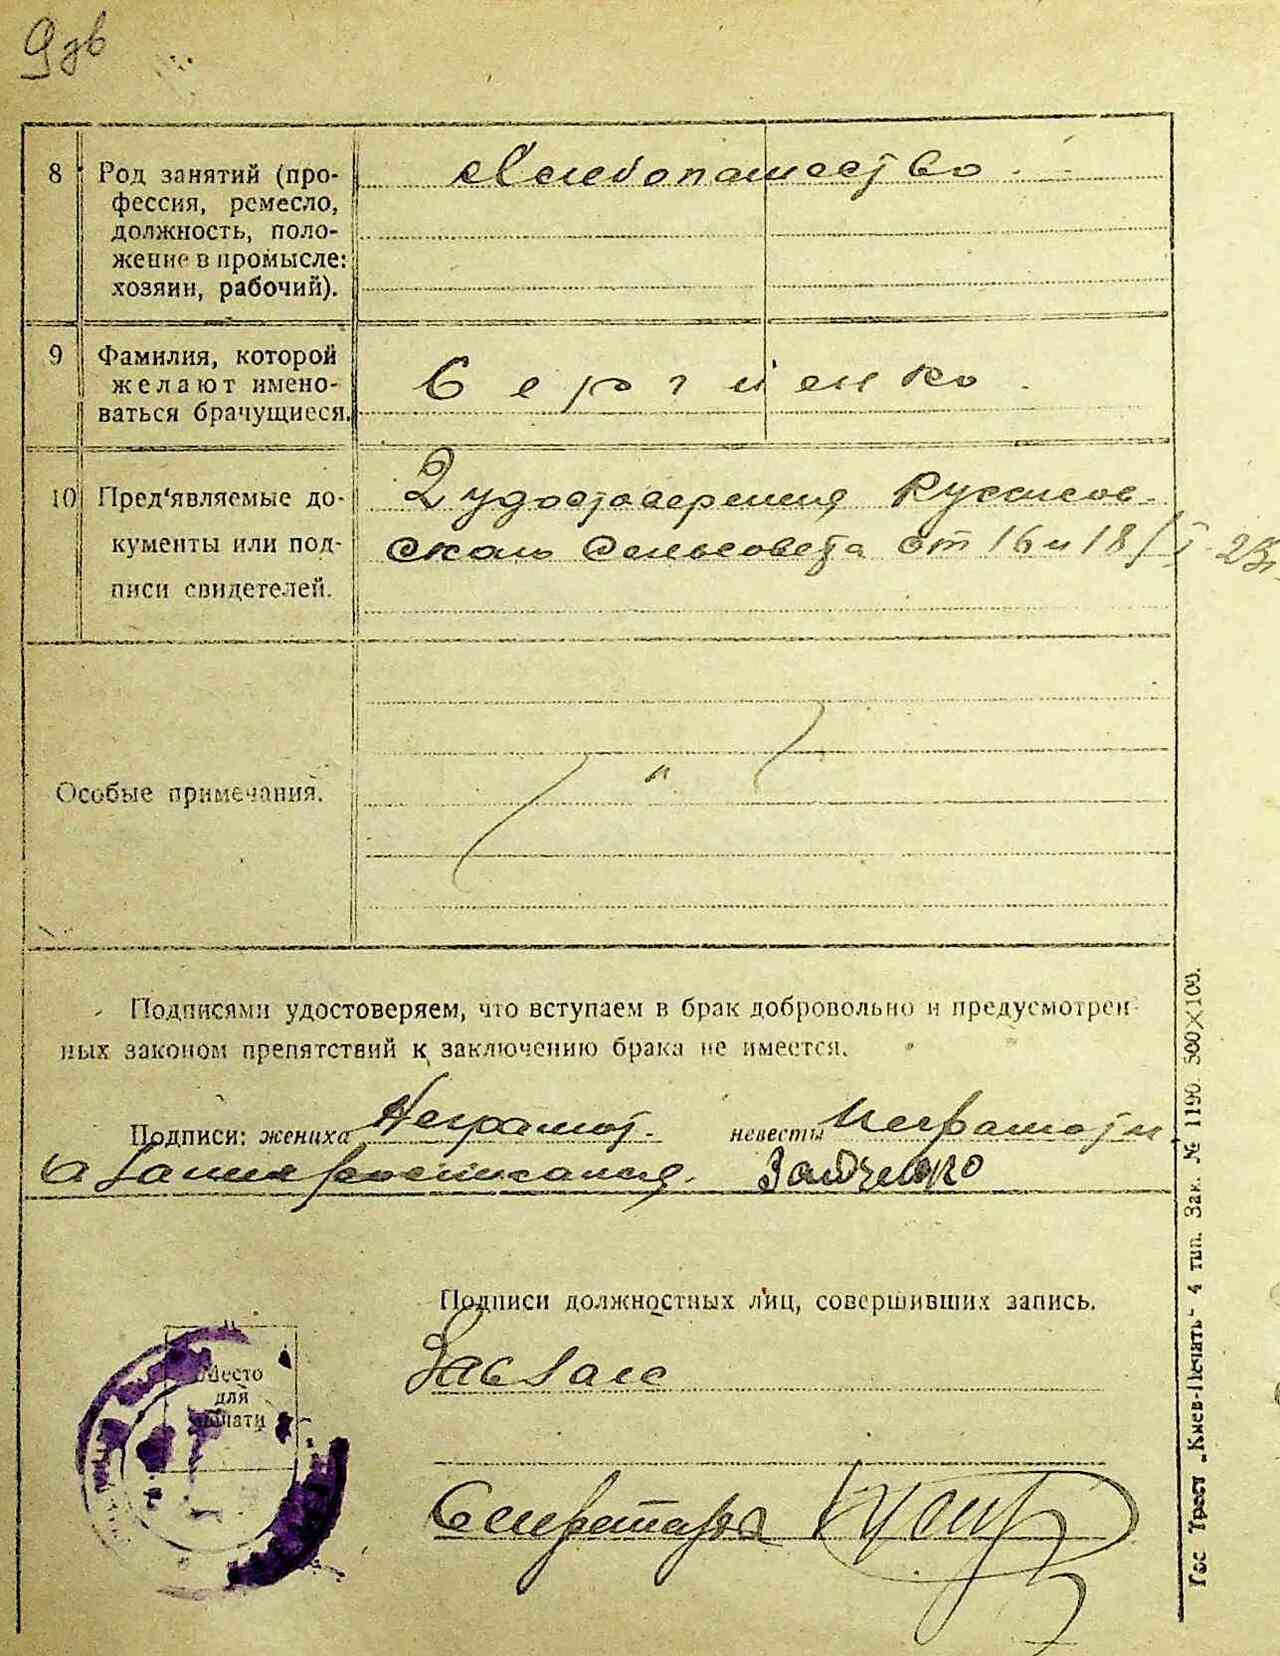 9 зв
8 Род занятий (про-
фессия, ремесло,
должность, поло-
жение в промысле:
хозяин, рабочий).
Хлебопашество.
9 Фамилия, которой
желают имено-
ваться брачущиеся.
Сергиенко.
10 Пред'являемые до-
кументы или под-
писи свидетелей.
2 удостоверения
сельсовета от 16 и 18/I-23г
Особые примечания.
"
Подписями удостоверяем, что вступаем в брак добровольно и предусмотрен-
ных законом препятствий к заключению брака не имеется.
Подписи: жениха Неграмот. невесты Неграмотн
Зайченко
Подписи должностных лиц, совершивших запись.
Завзагс
Место
для
печати
Секретарь
Гос Трест „Киев-Печать" 4 тип. Зак. № 1190. 500×100.